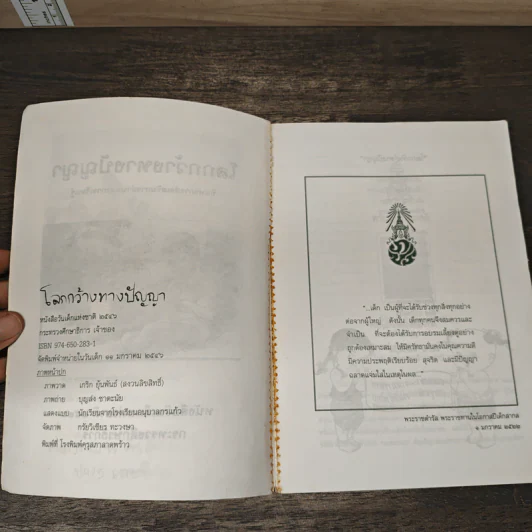 โลกกว้างทางปัญญา
หนังสือวันเด็กแห่งชาติ ๒๕๔๖
กระทรวงศึกษาธิการ เจ้าของ
ISBN 974-650-283-1
จัดพิมพ์จำหน่ายในวันเด็ก ๑๑ มกราคม ๒๕๔๖
ภาพหน้าปก
ภาพวาด เกริก ยุ้นพันธ์ (สงวนลิขสิทธิ์)
ภาพถ่าย บุญส่ง
แสดงแบบ นักเรียนจากโรงเรียนอนุบาลกรแก้ว
จัดภาพ กรัยวิเชียร
พิมพ์ที่ โรงพิมพ์คุรุสภาลาดพร้าว
"...เด็ก เป็นผู้ที่จะได้รับช่วงทุกสิ่งทุกอย่าง
ต่อจากผู้ใหญ่ ดังนั้น เด็กทุกคนจึงสมควรและ
จำเป็น ที่จะต้องได้รับการอบรมเลี้ยงดูอย่าง
ถูกต้องเหมาะสม ให้มีศรัทธามั่นคงในคุณความดี
มีความประพฤติเรียบร้อย สุจริต และมีปัญญา
ฉลาดแจ่มใสในเหตุในผล..."
พระราชดำรัส พระราชทานในโอกาสปีเด็กสากล
๑ มกราคม ๒๕๒๒